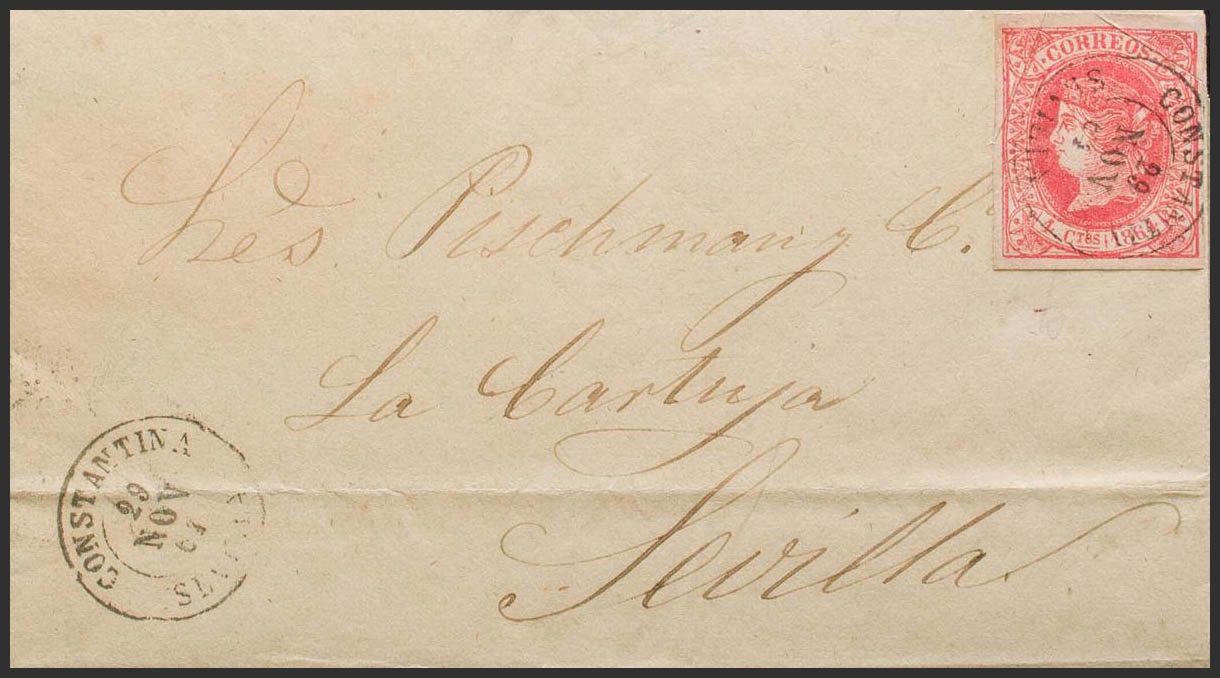 CORREOS
4 CTOS 1864
CONSTANTINA
29
NOV
Pickman y C.ª
La Cartuja
Sevilla
CONSTANTINA
29
NOV